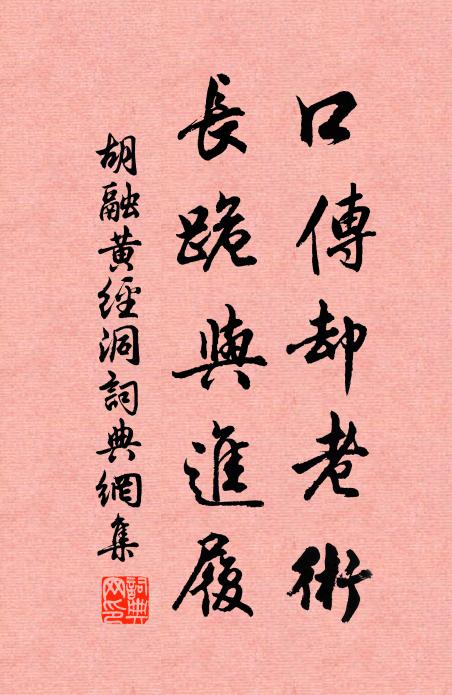 口傳却老術
長跪與進履
胡融黃經洞詞典網集
詞典網印